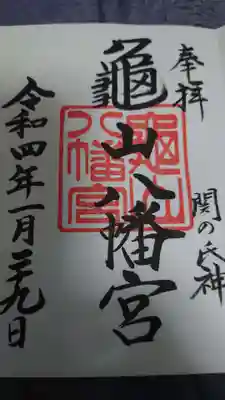 奉拝
関の氏神
龜山八幡宮
龜山八幡宮
令和四年一月二十九日